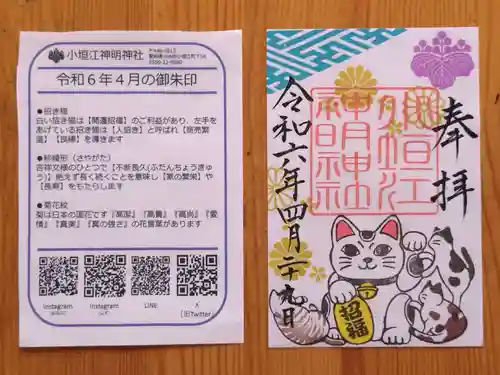 小垣江神明神社
令和６年４月の御朱印
●招き猫
白い招き猫は【開運招福】のご利益があり、左手を
あげている招き猫は【人招き】と呼ばれ【商売繁
盛】【良縁】を導きます
●紗綾形（さやがた）
吉祥文様のひとつで『不断長久(ふだんちょうきゅ
う)』絶えず長く続くことを意味し【家の繁栄】や
【長寿】をもたらします
●菊花紋
菊は日本の国花です『高潔』『高貴』『高尚』『愛
情』『真実』『真の強さ』の花言葉があります
Instagram
Instagram
LINE
X
(旧Twitter)
奉拝
小垣江
神明神社
令和六年四月二十九日
招福